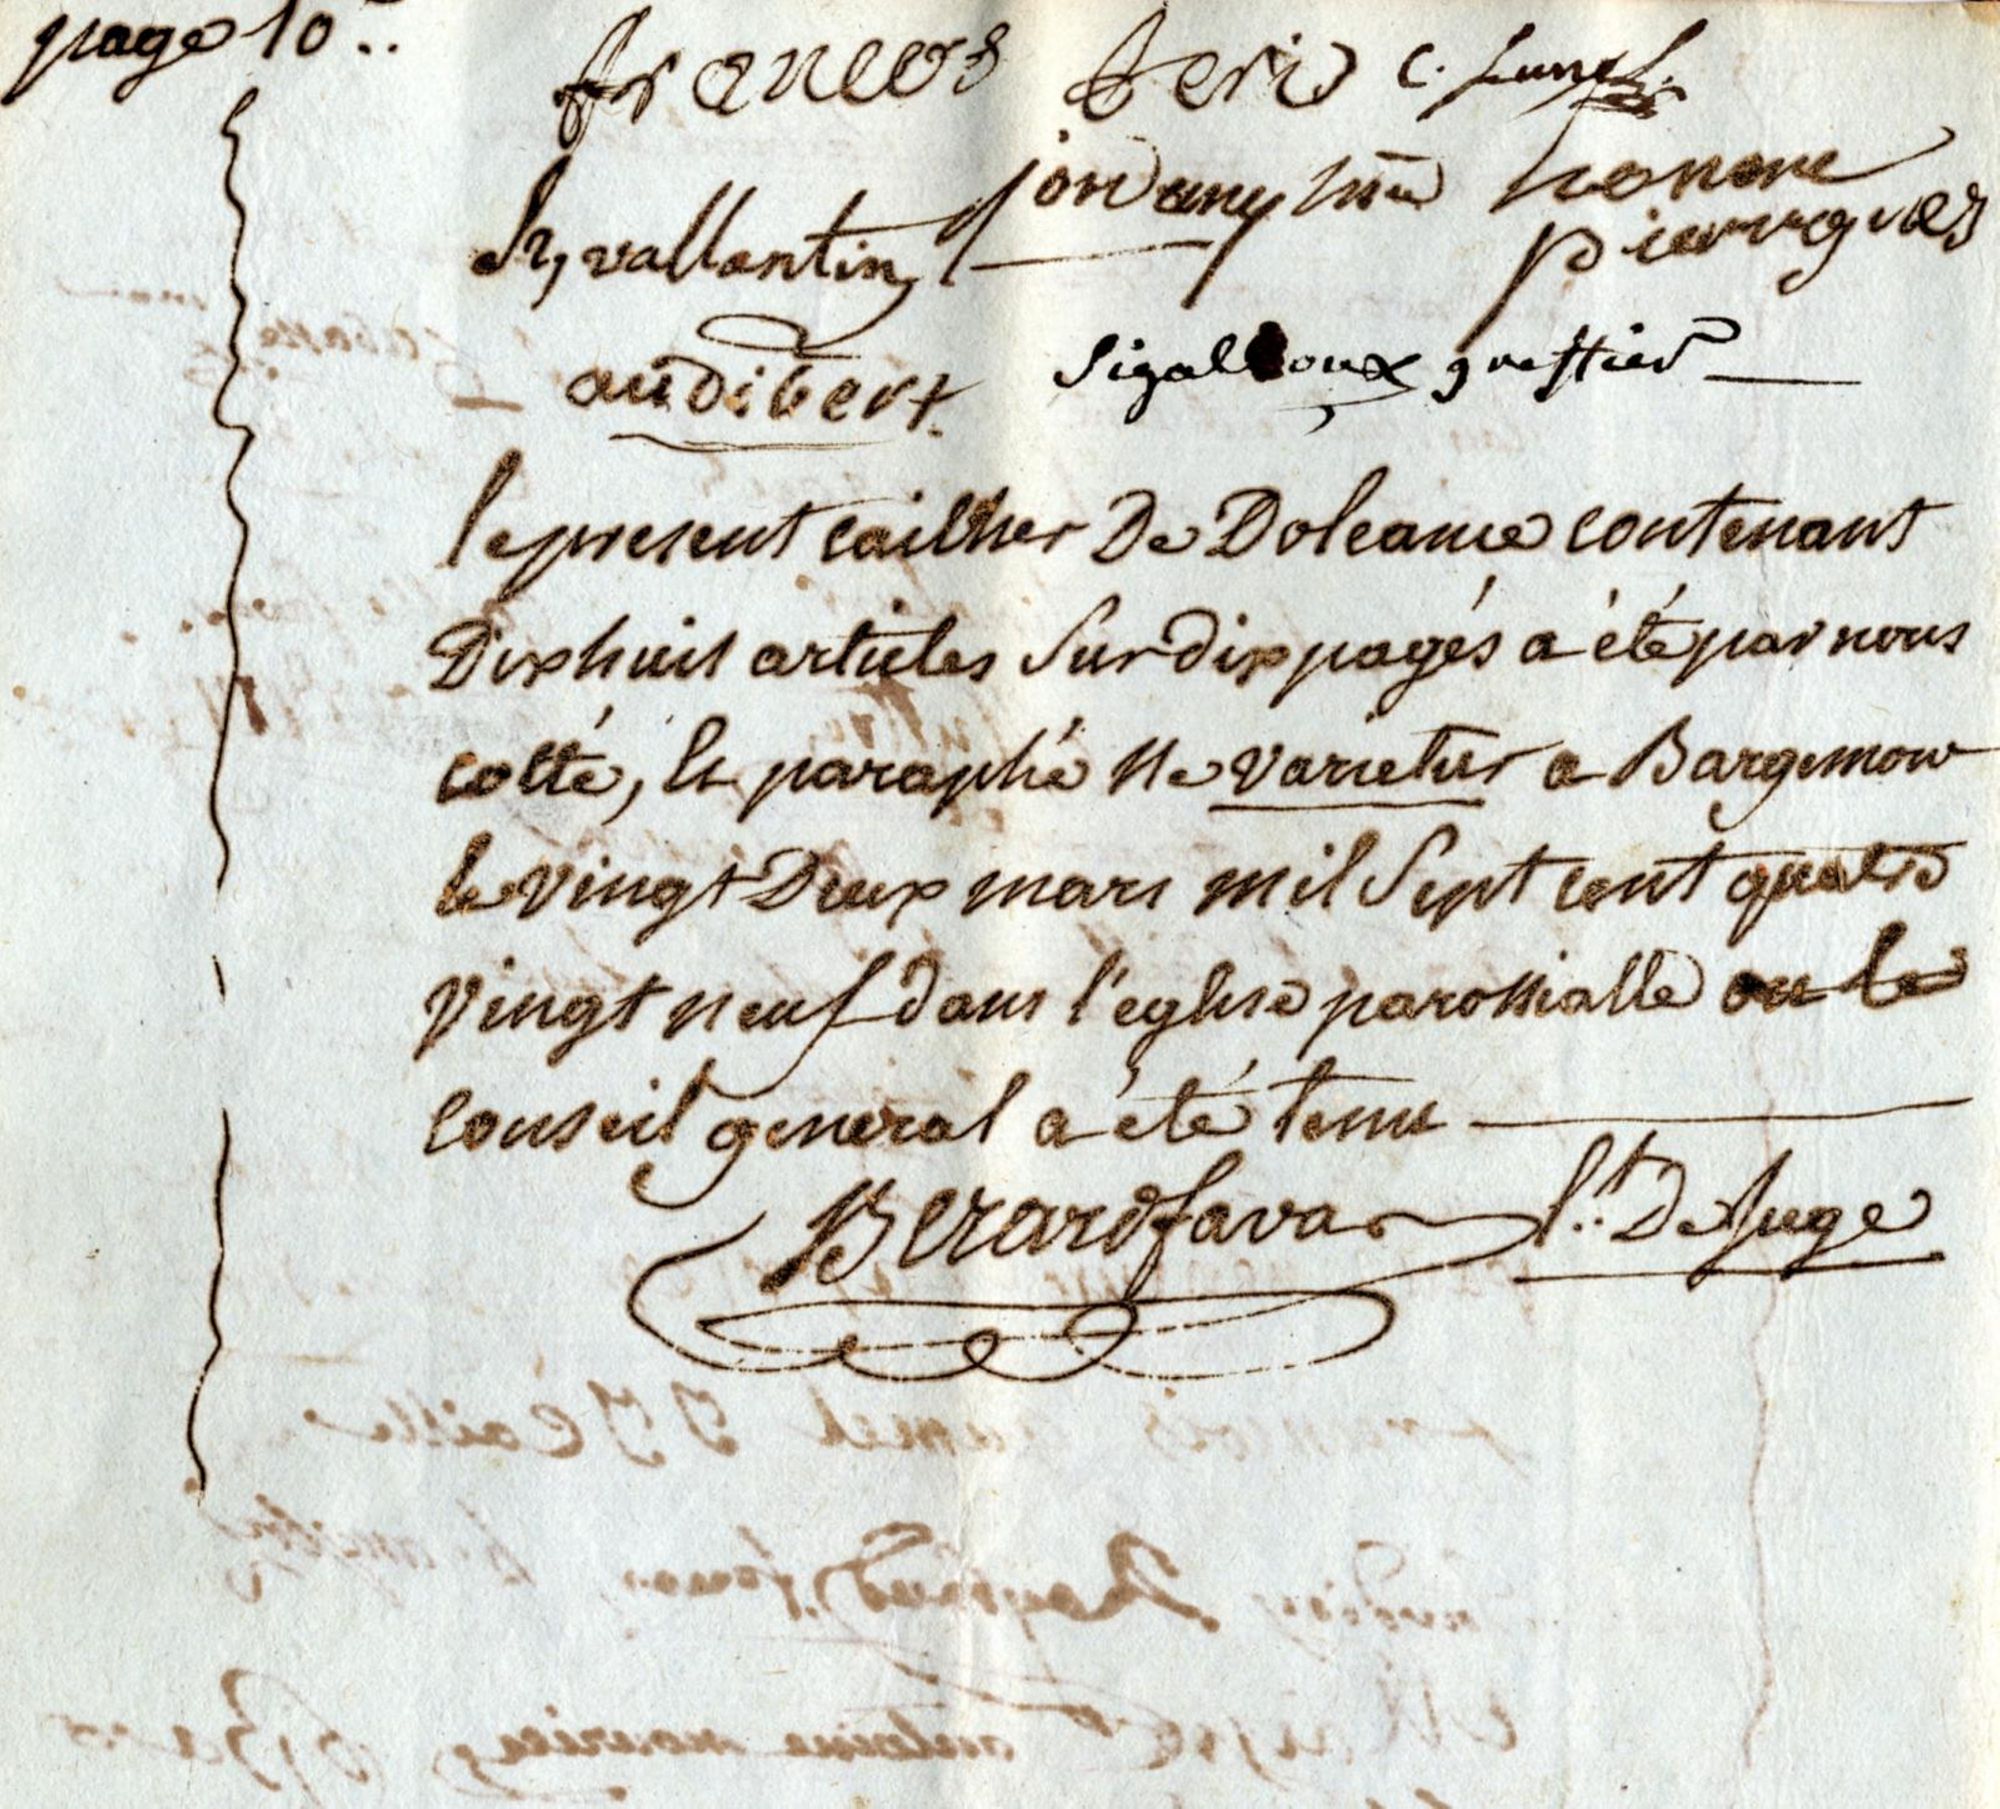 page 10..
francos
jordany
honore
sr, vallantin
audibert
greffier
le present cailher de Doleance contenant
Dix huit articles sur dix pagés a été par nous
cotté, et paraphé ne varietur a Bargemon
le vingt Deux mars mil sept cent quatre
vingt neuf dans l'eglise paroissialle ou le
conseil general a été tenu
Berard favas lt. De Juge